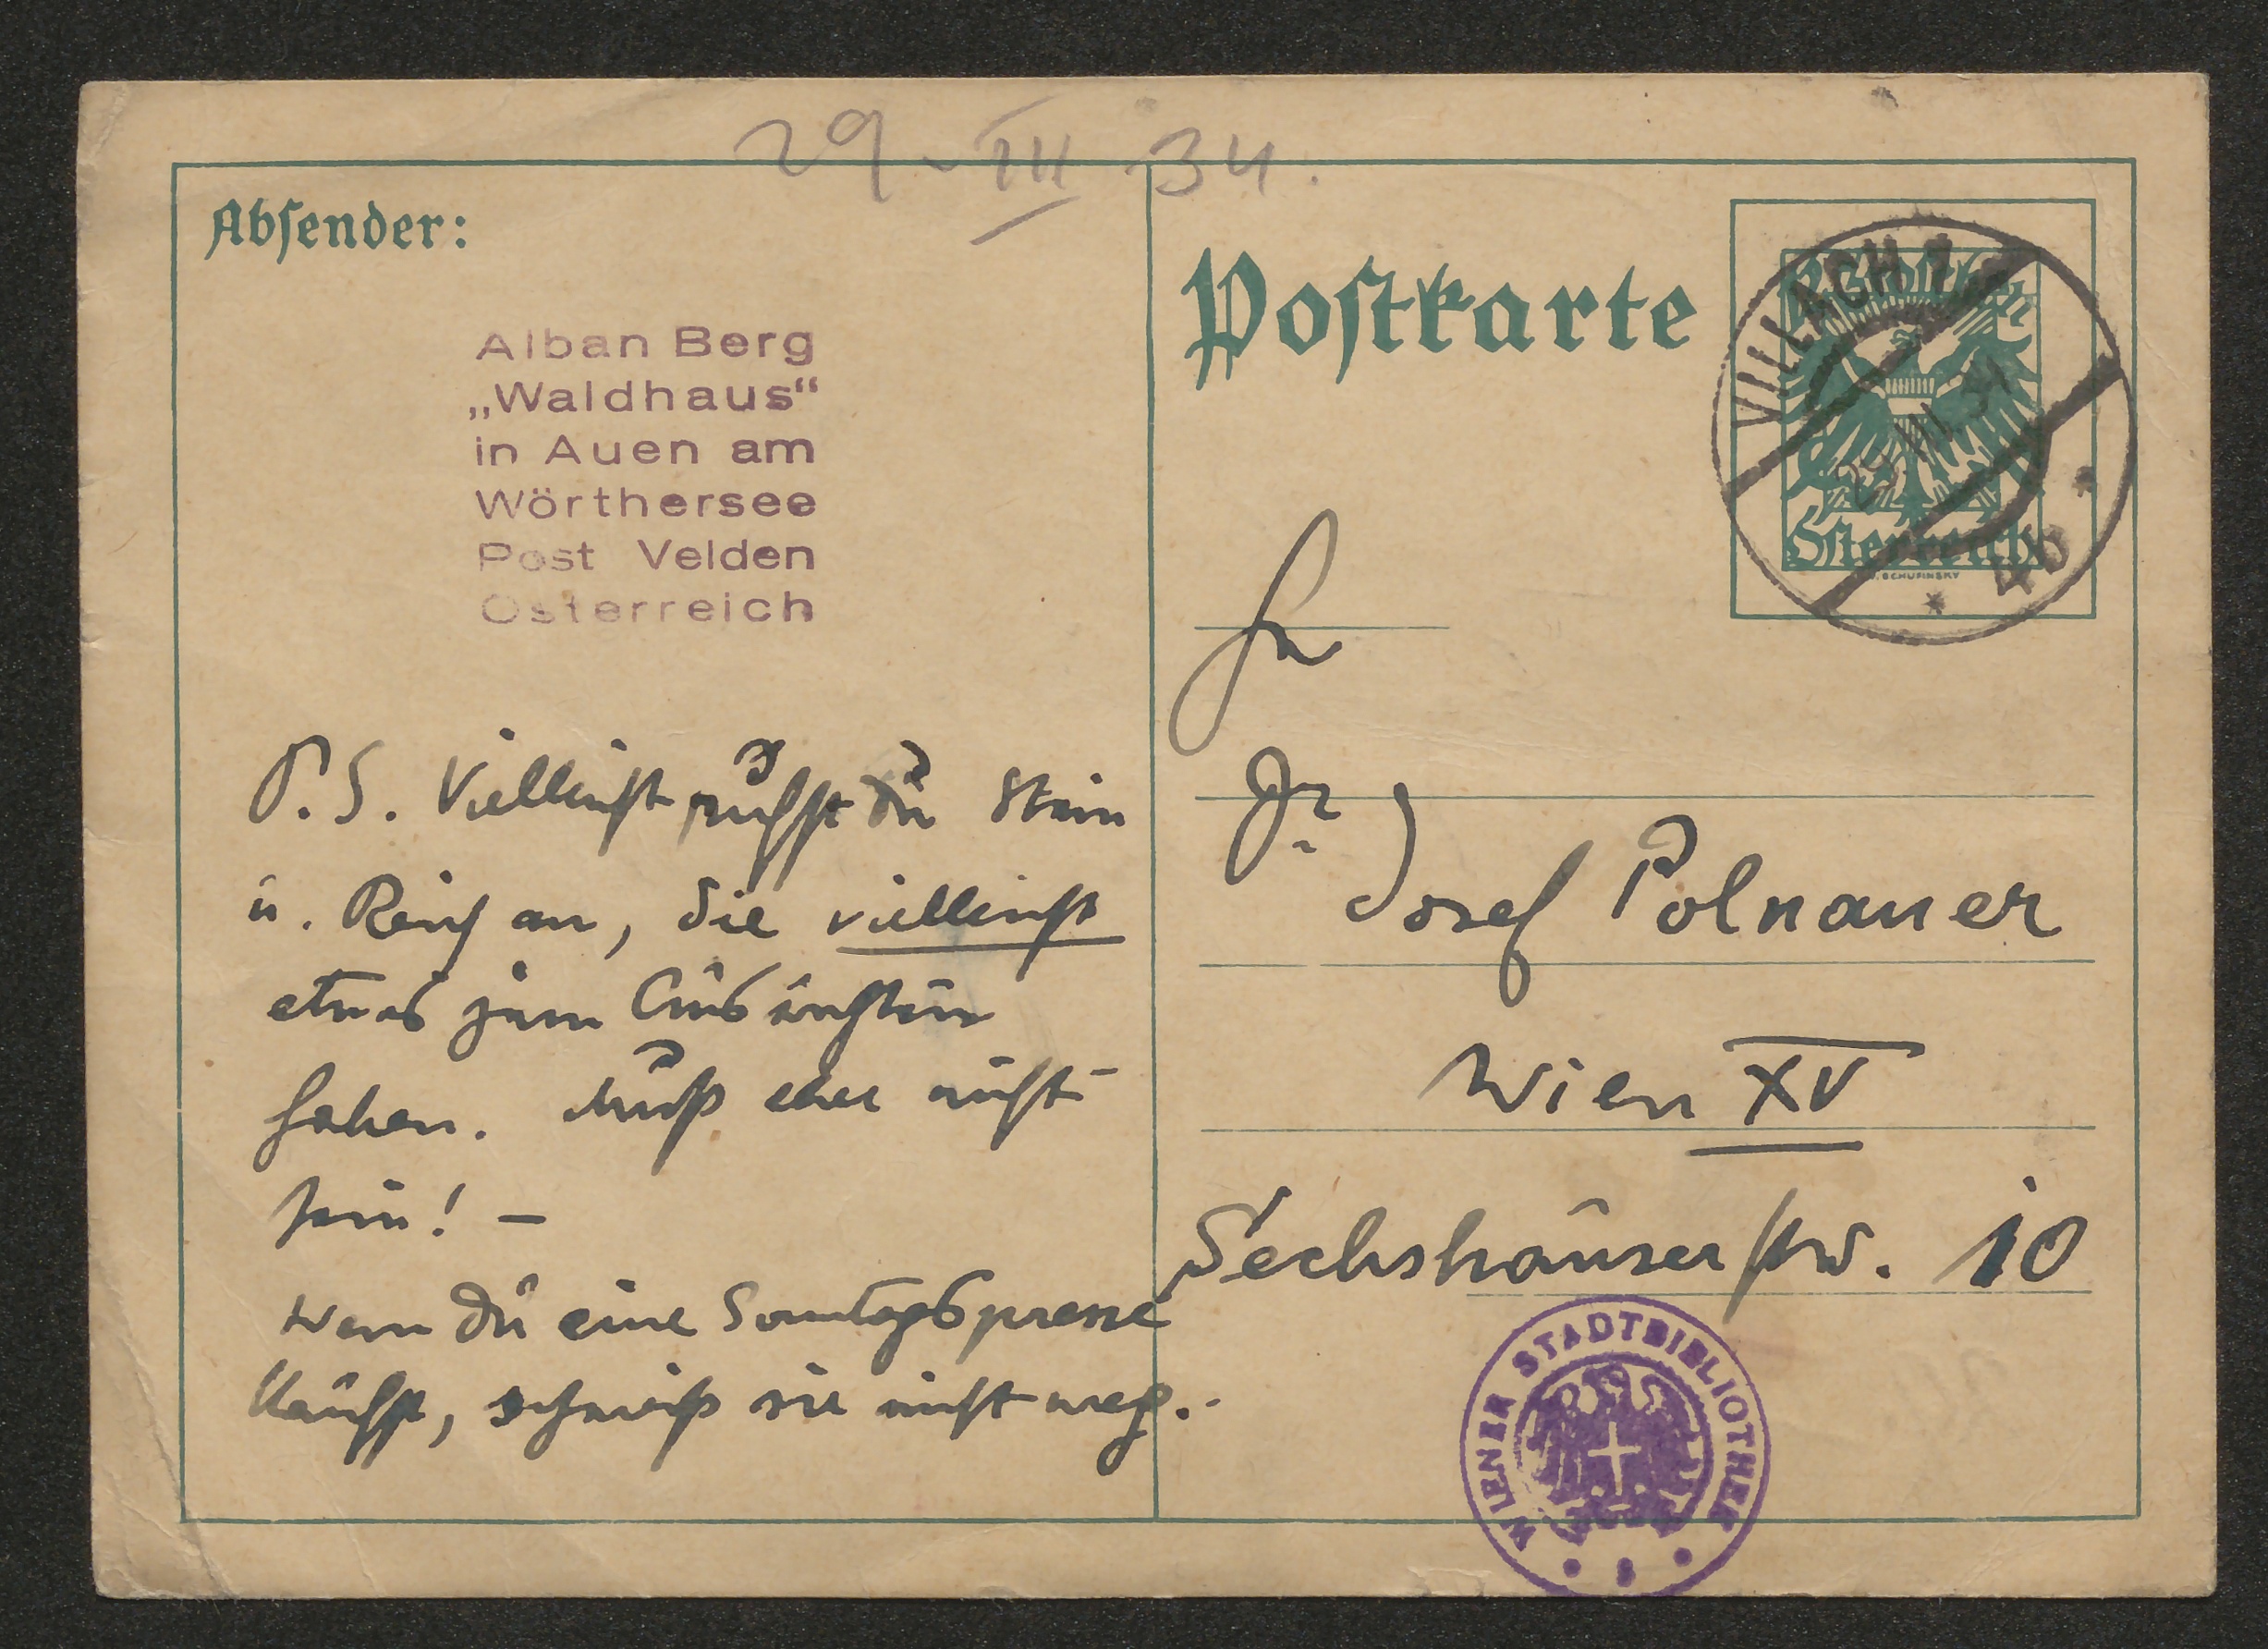 29. III 34.
Absender:
Alban Berg
„Waldhaus“
in Auen am
Wörthersee
Post Velden
Österreich
P.S. Vielleicht rufst Du Stein
u. Reich an, die vielleicht
etwas zum Ausrichten
haben. Muß aber nicht
sein! –
Wenn Du eine Sonntagspresse
kaufst, schmeiß sie nicht weg.
Postkarte
VILLACH 1
Österreich
SCHUFINSKY
4b
Dr
Josef Polnauer
Wien XV
Sechshauserstr. 10
WIENER STADTBIBLIOTHEK